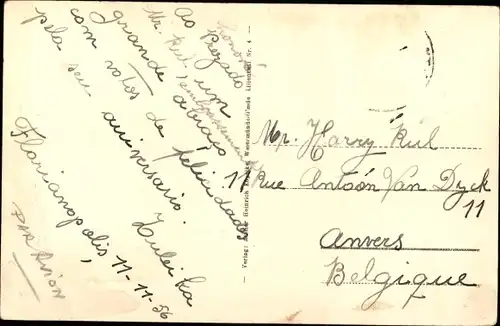 Ao prezado
Mr. Kul um
grande abraço
com votos de felicidades
pelo seu aniversario.
Zuleika
Florianopolis, 11-11-56
PAR AVION
Verlag: Heinrich
Mr. Harry Kul
11 Rue Antoón Van Dyck
11
Anvers
Belgique